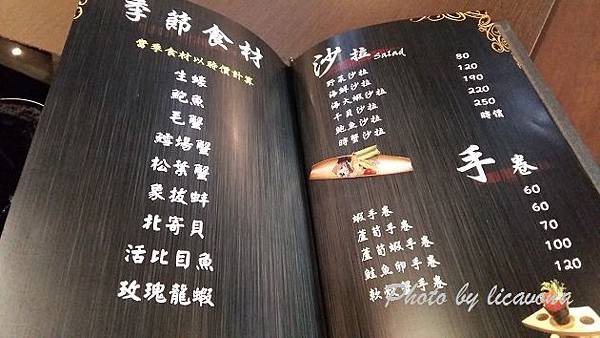 季節食材
當季食材以時價計算
生蠔
鮑魚
毛蟹
鱈場蟹
松葉蟹
象拔蚌
北寄貝
活比目魚
玫瑰龍蝦
沙拉 Salad
野菜沙拉 80
海鮮沙拉 120
海大蝦沙拉 190
干貝沙拉 220
鮑魚沙拉 250
時蟹沙拉 時價
手卷
蝦手卷 60
蘆筍手卷 60
蘆筍蝦手卷 70
鮭魚卵手卷 100
軟 手卷 120
Photo by licavona